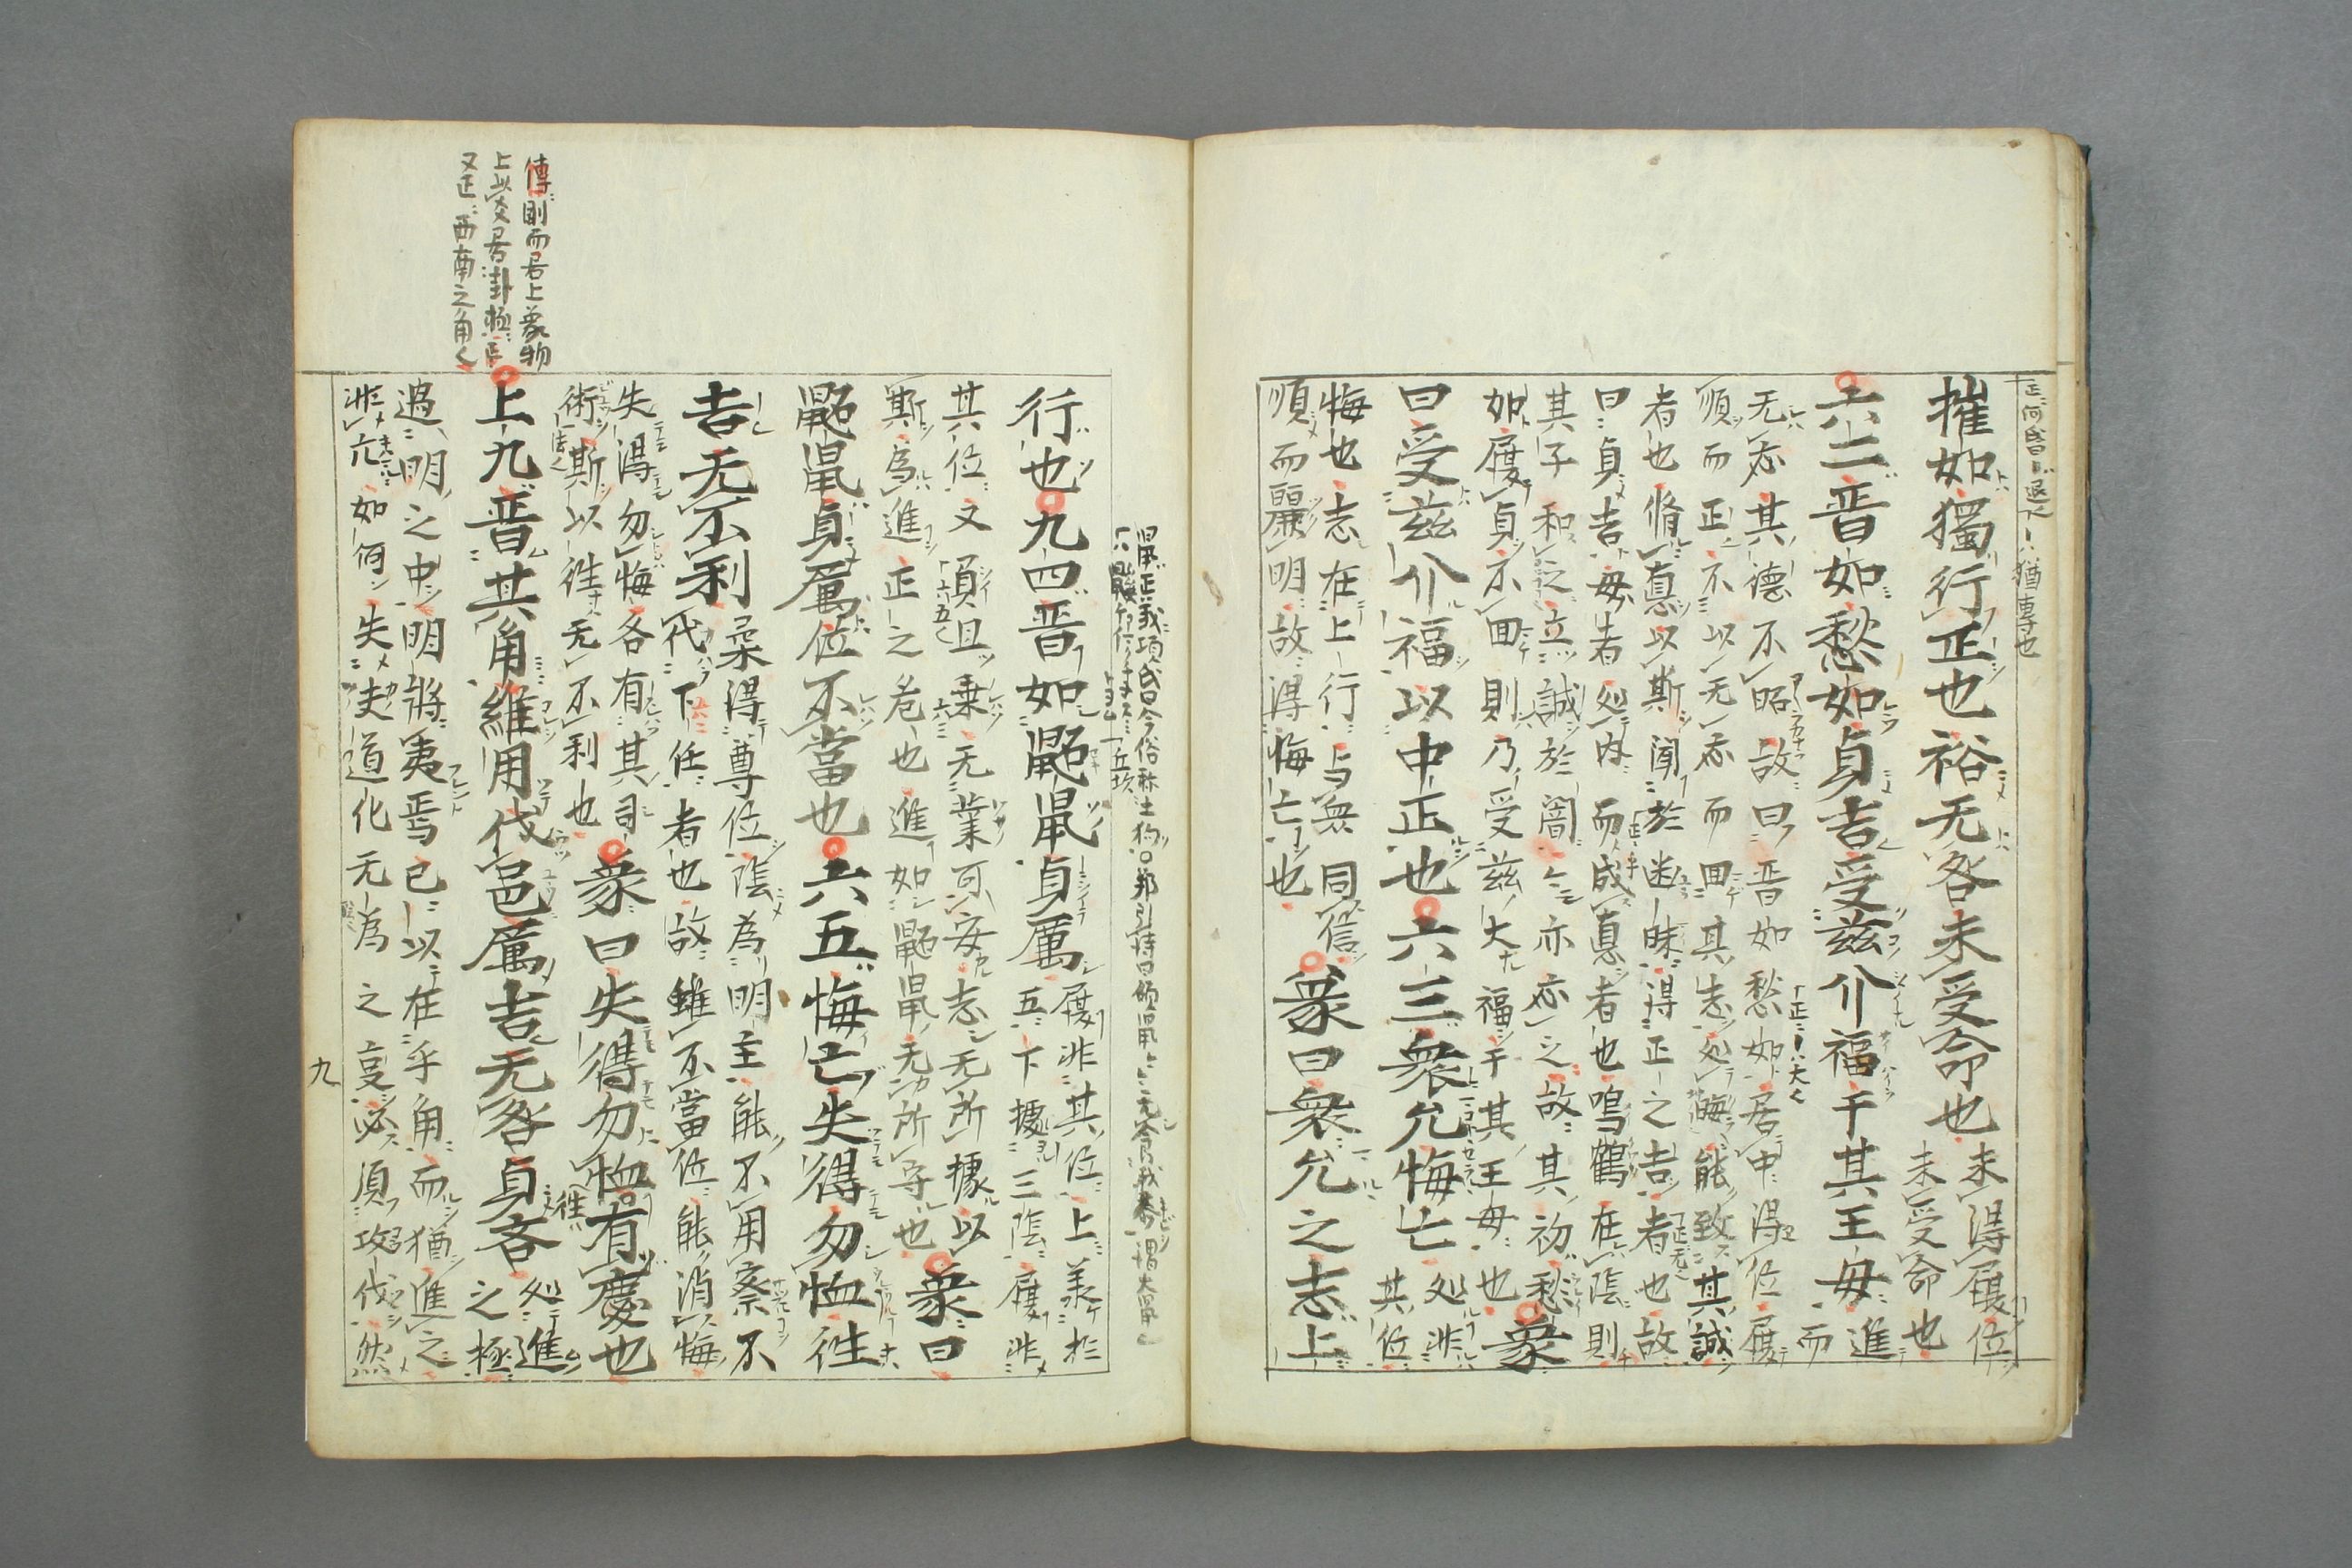 摧如獨行正也裕无咎未受命也
未得履位
未受命也
六二晋如愁如貞吉受兹介福于其王母
進而
无忝其德不昭故曰晋如愁如居中得位履
順而正不以无忝而回其志処晦能致其誠
者也脩悳以斯闻於幽昧得正之吉者也故
曰貞吉母者処内而成悳者也鳴鶴在陰則
其子和之立誠於闇々亦忝之故其初愁
如履貞不回則乃受兹大福于其王母也
象
曰受兹介福以中正也六三衆允悔亡
処非
其位
悔也志在上行与衆同信
順而麗明故得悔亡也
象曰衆允之志上
行也九四晋如鼫鼠貞厲
履非其位上羕於
五下據三陰履非
其位又負且乗无業可安志无所據以
斯為進正之危也進如鼫鼠无所守也
象曰
鼫鼠貞厲位不當也六五悔亡失得勿恤徃
吉无不利
柔得尊位陰為明主能不用察不
代下任者也故雖不當位能消悔
失得勿悔各有其司
術斯以徃无不利也
象曰失得勿恤徃有慶也
上九晋其角維用伐邑厲吉无咎貞吝
処進
之極
過明之中明將夷焉已以在乎角而猶進之
非亢如何失夫道化无為之変必須攻伐然
傳剛而居上象物
上以爻居卦極
又正西南之角く
九